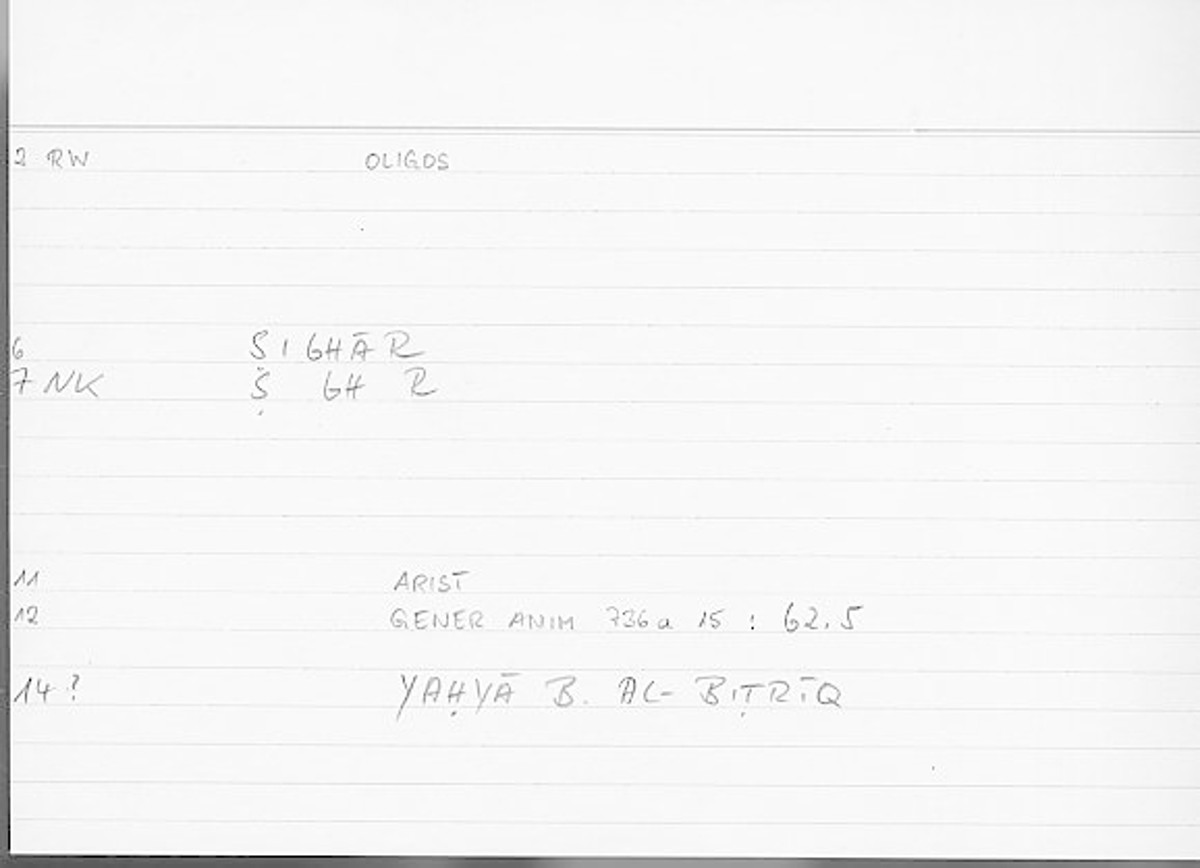 2 RW OLIGOS
6 ṢIGHĀR
7 NK Ṣ GH R
11 ARIST
12 GENER ANIM 736a 15 : 62.5
14 ? YAḤYĀ B. AL-BIṬRĪQ